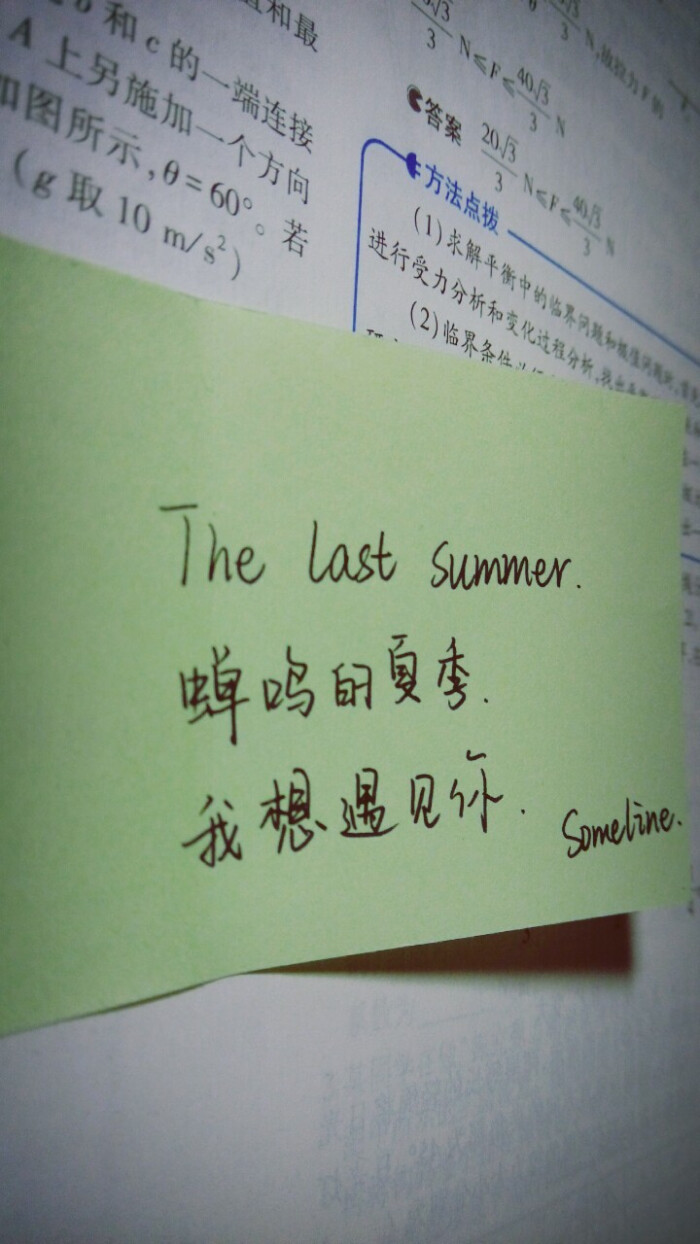 b和c的一端连接
A上另施加一个方向
如图所示,θ=60°。若
(g取10 m/s²)
3 N≤F≤40√3/3 N
答案 20√3/3 N≤F≤40√3/3 N
方法点拨
(1)求解平衡中的临界问题和极值问题时,
进行受力分析和变化过程分析,找出
(2)临界条件
The last summer.
蝉鸣的夏季.
我想遇见你.
Someline.